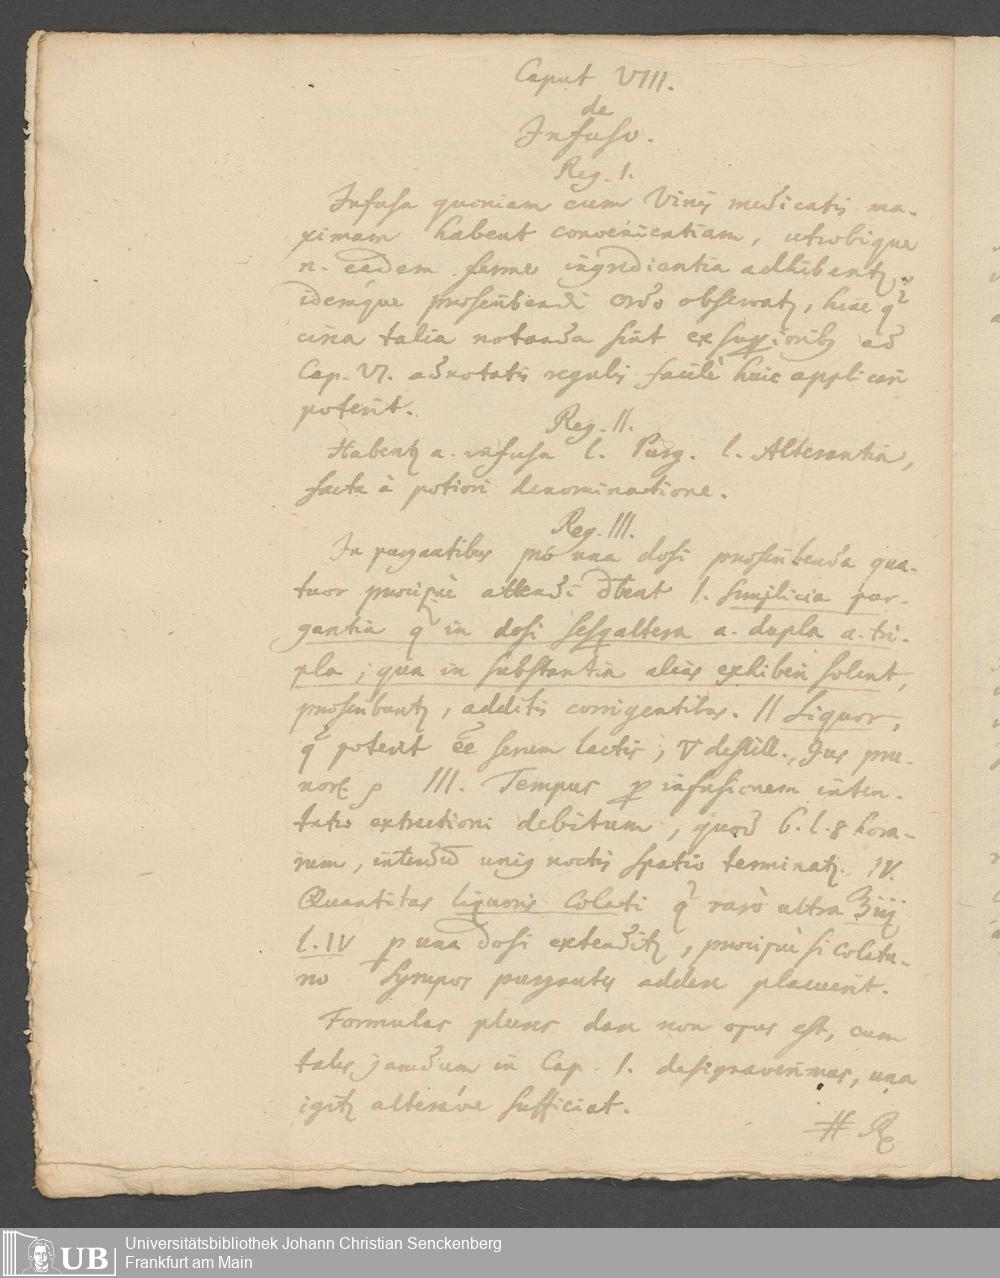 Caput VIII.
de
Infuso.
Reg. I.
Infusa quoniam cum Vinis medicatis ma-
ximam habent convenientiam, utrobique
n. eaedem ferme ingredientia adhibentr,
idemque praescribendi ordo observatr, hinc q
circa talia notanda sint ex superioribus ad
Cap. VI. adnotatis regulis facilè huic applicari
poterit.
Reg. II.
Habentr a. infusa l. Purg. l. Alterantia,
facta à potiori denominatione.
Reg. III.
In purgantibus pro una dosi praescribenda qua-
tuor praecipuè attendi dbent I. Simplicia pur-
gantia q in dosi sesqaltera a. dupla a. tri-
pla, qua in substantia aliàs exhiberi solent,
praescribuntr, additis corrigentibus. II Liquor,
q poterit eẽ serum lactis, ▽ destill., Jus pru-
nor III. Tempus p infusionem inten-
tato extractioni debitum, quod 6. l. 8 hora-
rum, interdũ unius noctis spatio terminatr. IV.
Quantitas liquoris Colati q rarò ultra ℥iij
l. IV p una dosi extenditr, praecipuè si colatu-
rae Syrupos purgantes addere placuerit.
Formulas plures dare non opus est, cum
tales jamdum in Cap. I. designaverimus, una
igitr alterave sufficiat.
# ℞
UB Universitätsbibliothek Johann Christian Senckenberg
Frankfurt am Main